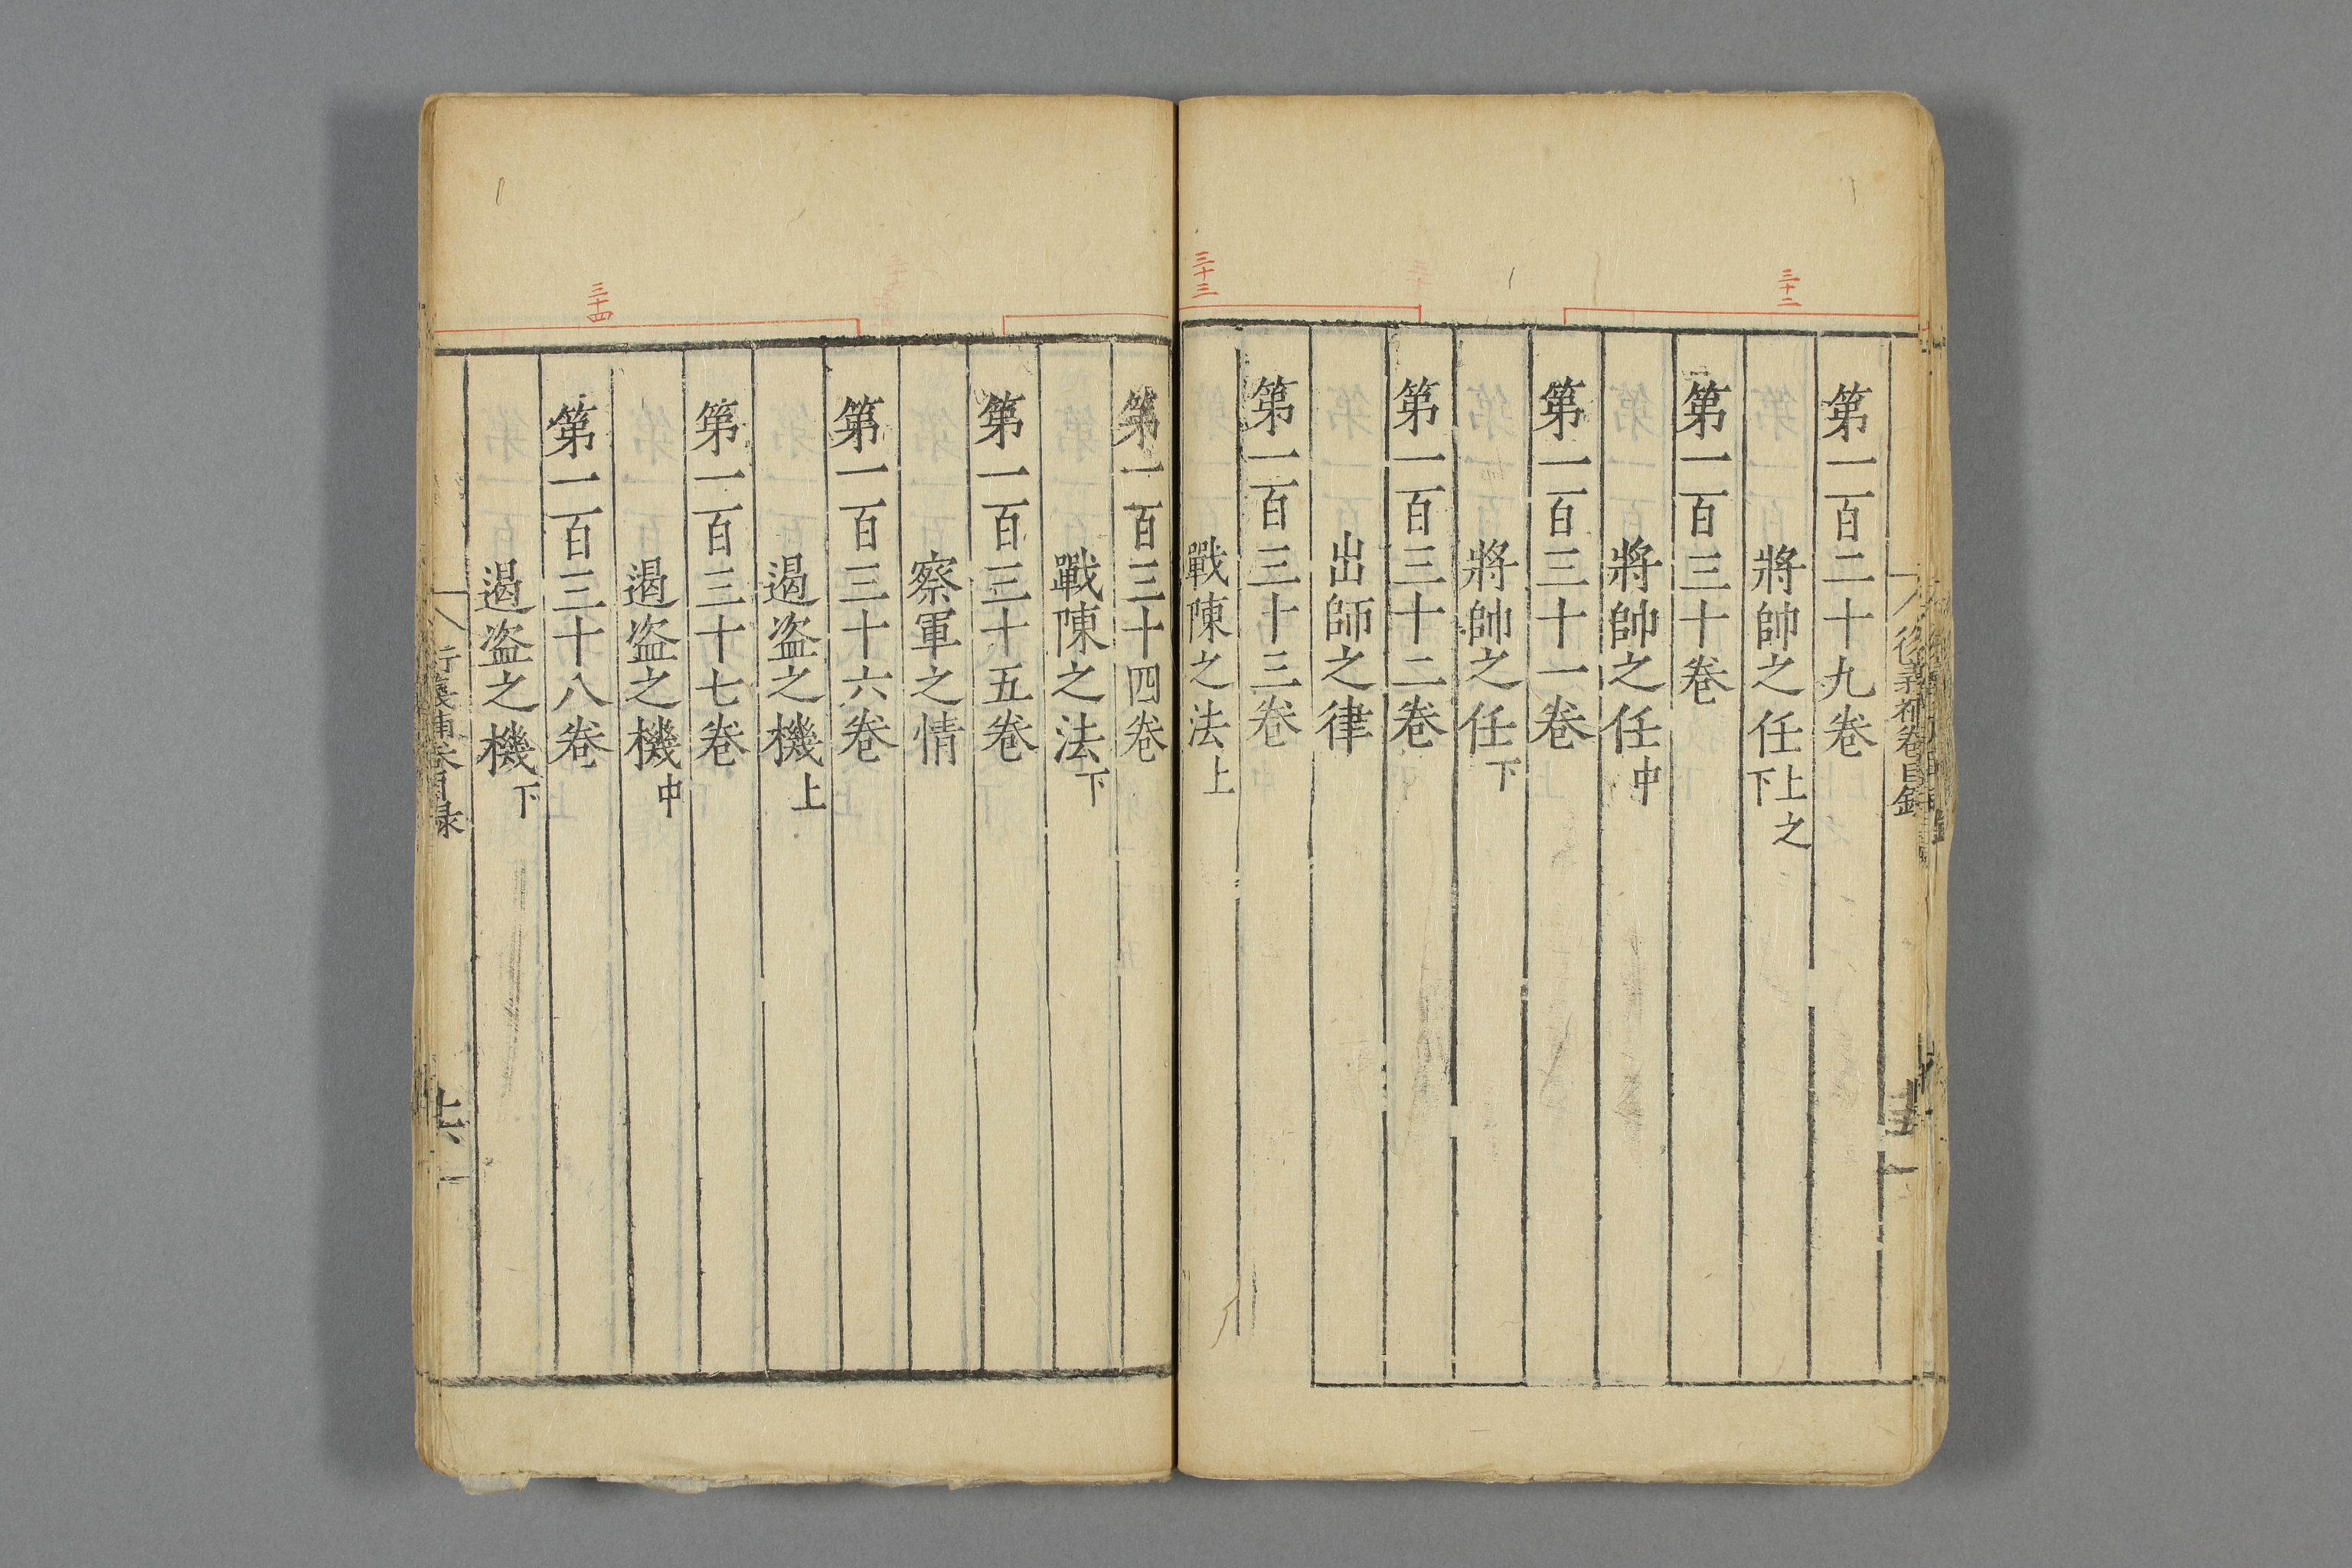 三十二
三十三
第一百二十九卷
將帥之任上之下
第一百三十卷
將帥之任中
第一百三十一卷
將帥之任下
第一百三十二卷
出師之律
第一百三十三卷
戰陳之法上
三十四
第一百三十四卷
戰陳之法下
第一百三十五卷
察軍之情
第一百三十六卷
遏盗之機上
第一百三十七卷
遏盗之機中
第一百三十八卷
遏盗之機下